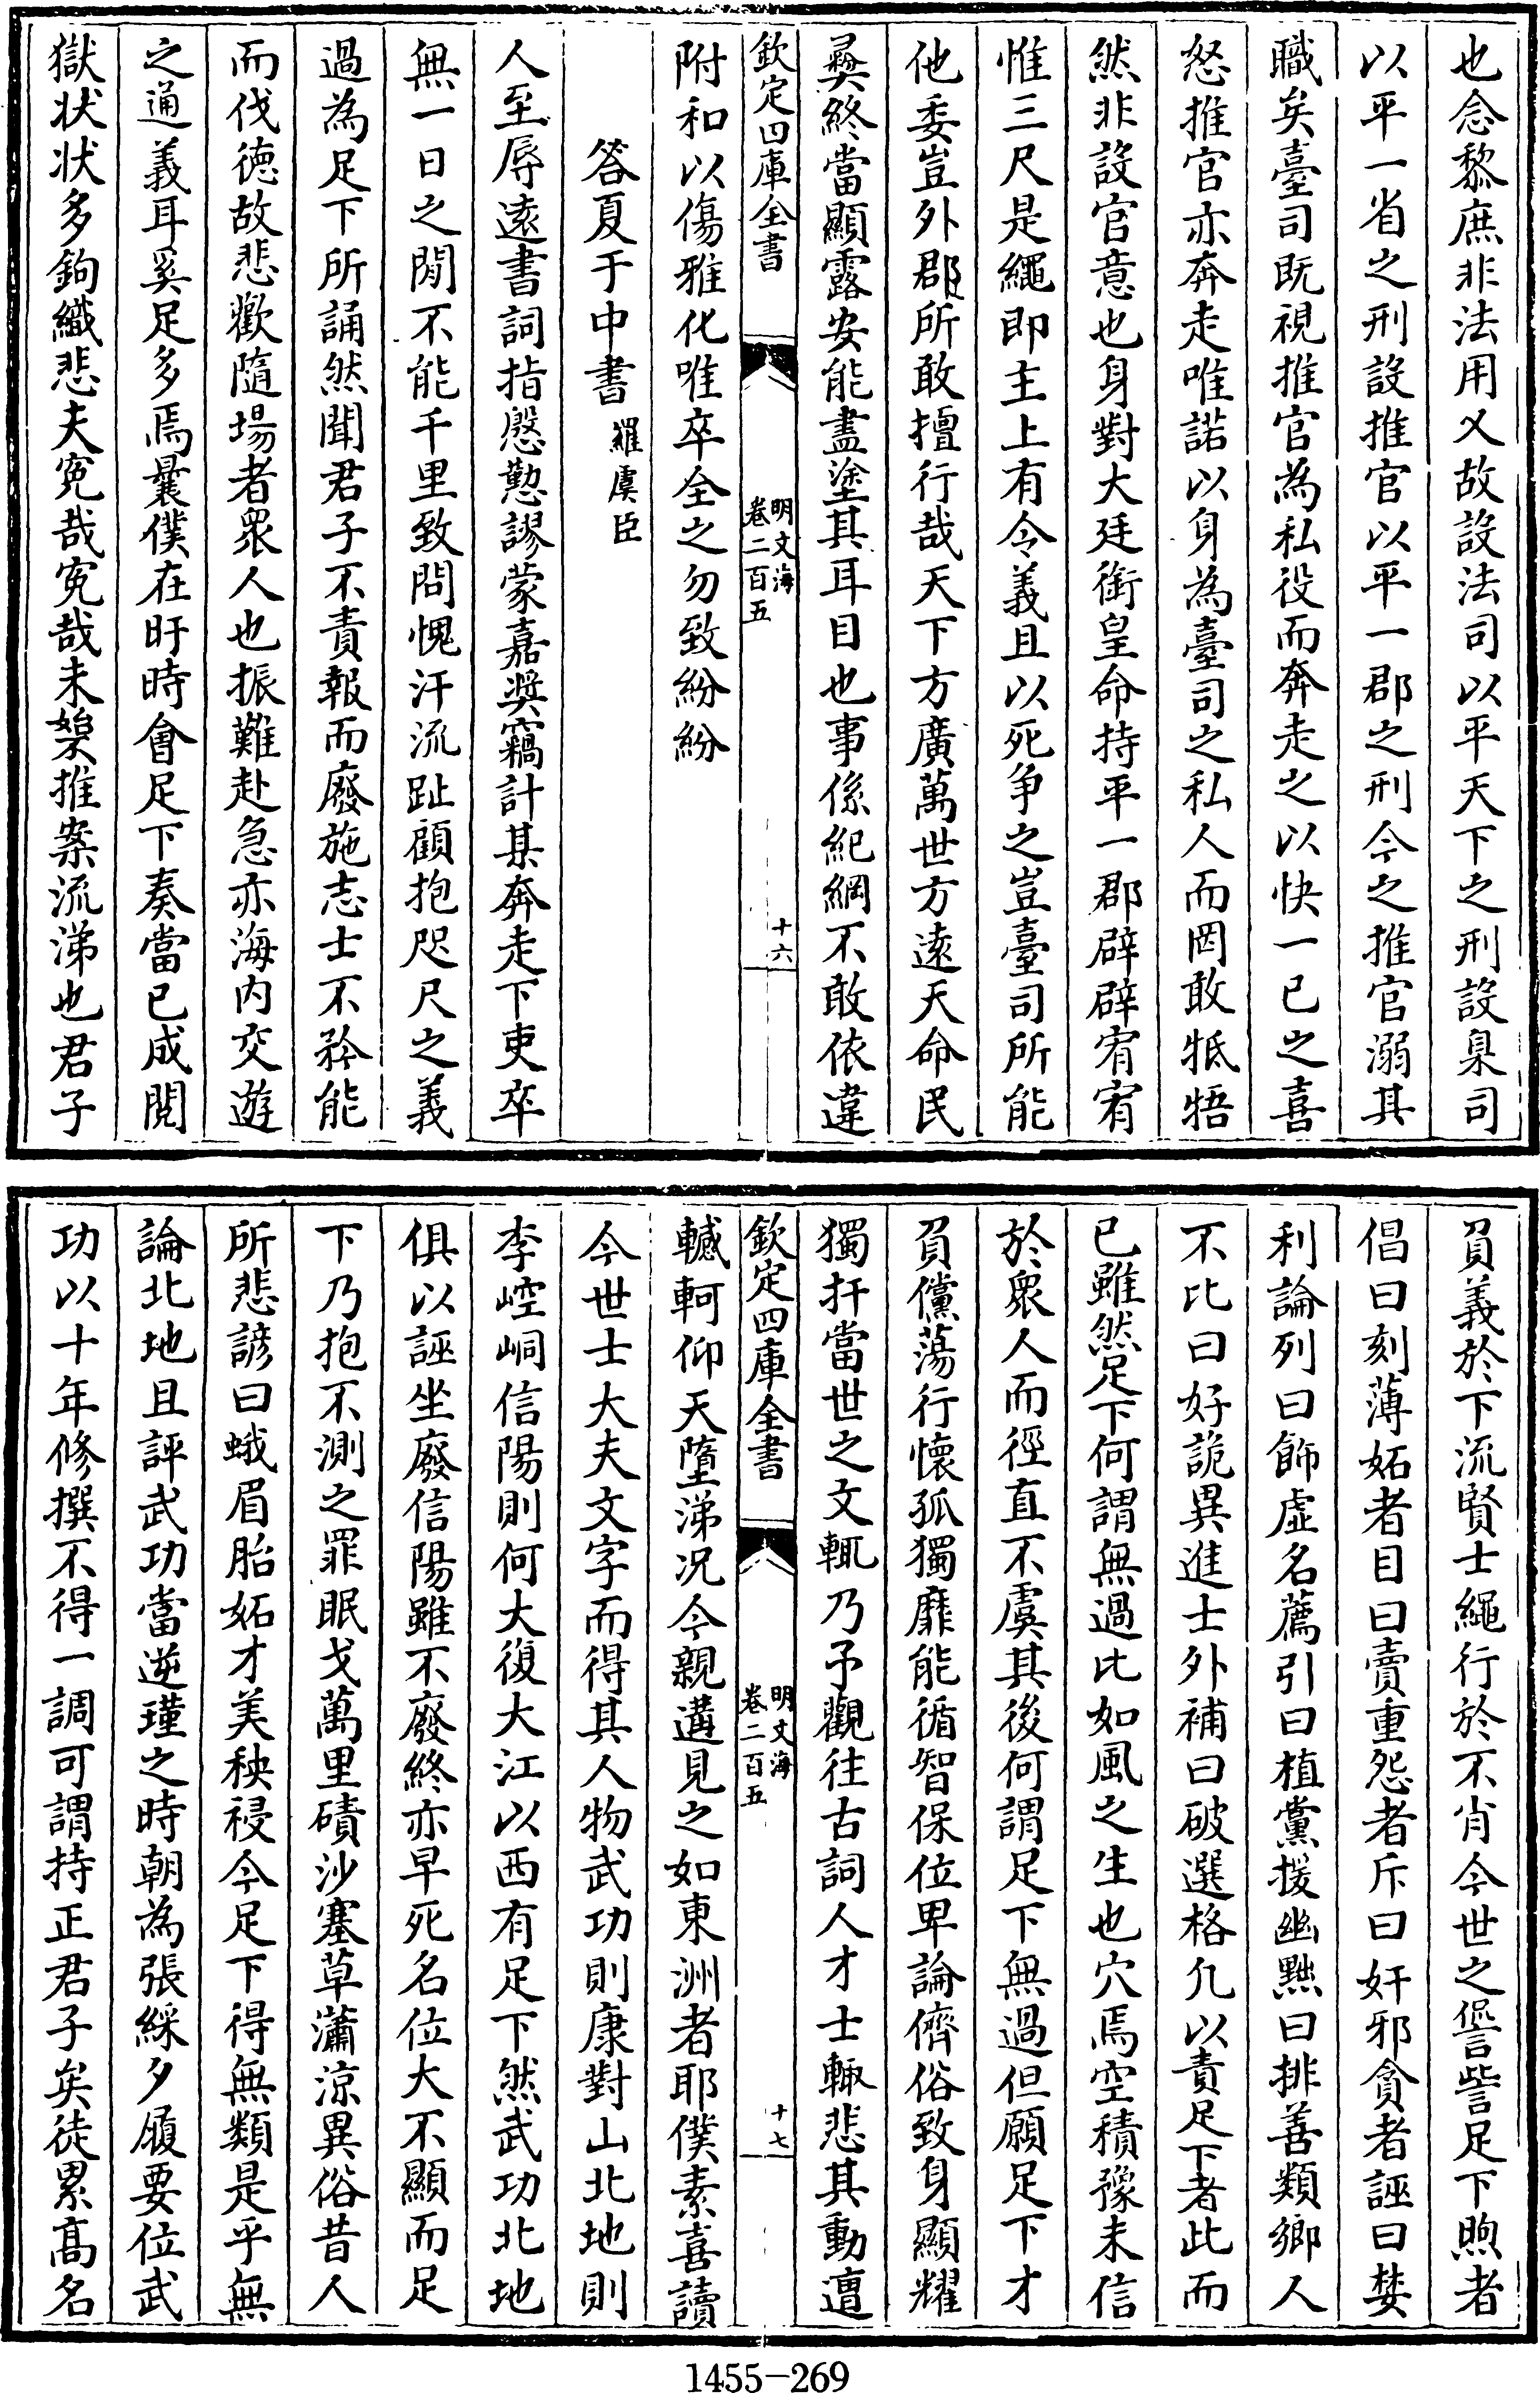 也念黎庶非法用乂故設法司以平天下之刑設臬司
以平一省之刑設推官以平一郡之刑今之推官溺其
職矣臺司既視推官為私役而奔走之以快一已之喜
怒推官亦奔走唯諾以身為臺司之私人而罔敢牴牾
然非設官意也身對大廷銜皇命持平一郡辟辟宥宥
惟三尺是繩即主上有令義且以死争之豈臺司所能
他委豈外郡所敢擅行哉天下方廣萬世方逺天命民
彛終當顯露安能盡塗其耳目也事係紀綱不敢依違
欽定四庫全書
明文海
卷二百五
十六
附和以傷雅化唯卒全之勿致紛紛
答夏于中書 羅虞臣
人至辱逺書詞指慇懃謬蒙嘉奬竊計某奔走下吏卒
無一日之閒不能千里致問愧汗流趾顧抱咫尺之義
過為足下所誦然聞君子不責報而廢施志士不矜能
而伐徳故悲歡隨場者衆人也振難赴急亦海内交遊
之通義耳奚足多焉曩僕在旴時會足下奏當已成閲
獄状状多鉤織悲夫寃哉寃哉未嘗不推案流涕也君子
負義於下流賢士繩行於不肖今世之譽訾足下煦者
倡曰刻薄妬者目曰賣重怨者斥曰奸邪貪者誣曰婪
利論列曰飾虚名薦引曰植黨援幽黜曰排善類鄉人
不比曰好詭異進士外補曰破選格凢以責足下者此而
已雖然足下何謂無過比如風之生也穴焉空積豫未信
於衆人而徑直不虞其後何謂足下無過但願足下才
負儻蕩行懷孤獨靡能循智保位卑論儕俗致身顯耀
獨扞當世之文輒乃予觀往古詞人才士輙悲其動邅
欽定四庫全書
明文海
卷二百五
十七
轗軻仰天墮涕况今親遘見之如東洲者耶僕素喜讀
今世士大夫文字而得其人物武功則康對山北地則
李崆峒信陽則何大復大江以西有足下然武功北地
俱以誣坐廢信陽雖不廢終亦早死名位大不顯而足
下乃抱不測之罪眠戈萬里磧沙塞草瀟凉異俗昔人
所悲諺曰蛾眉胎妬才美秧祲今足下得無類是乎無
論北地且評武功當逆瑾之時朝為張綵夕履要位武
功以十年修撰不得一調可謂持正君子矣徒累髙名
1455-269